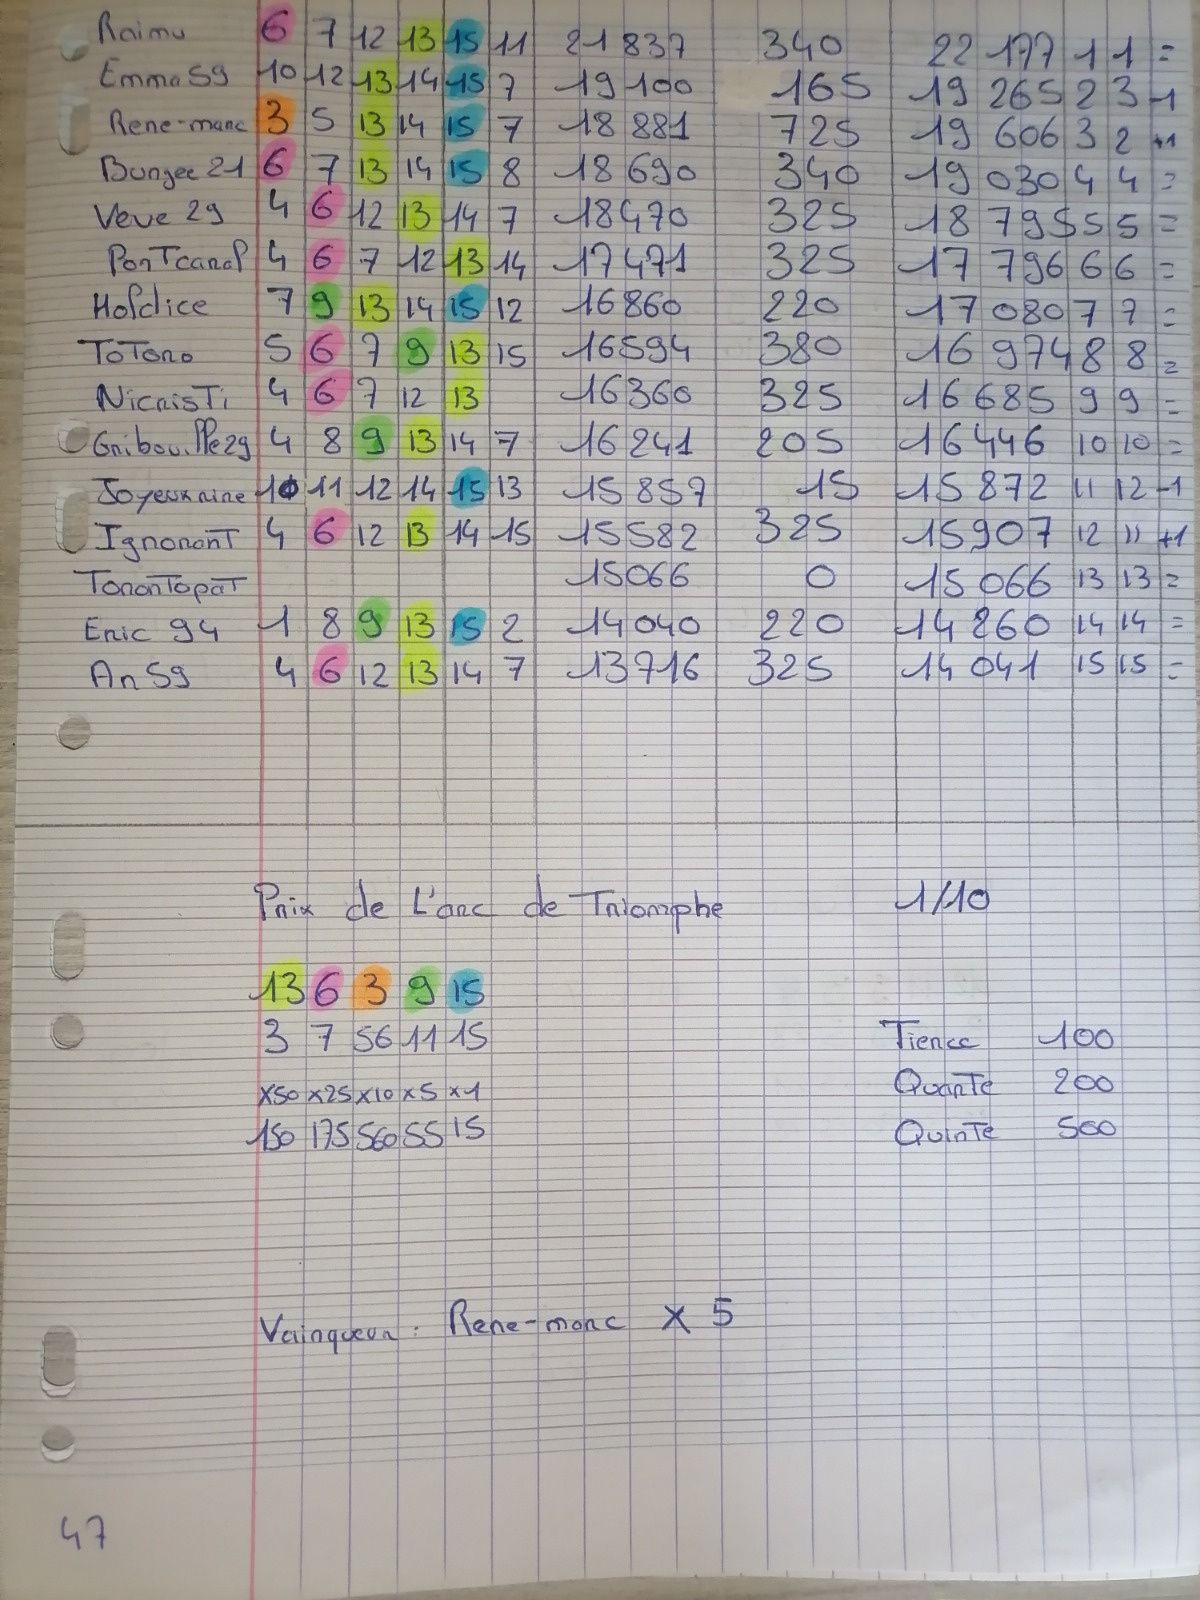 Raimu 6 7 12 13 15 11 21 837 340 22 177 1 1 =
Emma59 10 12 13 14 15 7 19 100 165 19 265 2 3 -1
Rene-marc 3 5 13 14 15 7 18 881 725 19 606 3 2 +1
Bungee 21 6 7 13 14 15 8 18 690 340 19 030 4 4 =
Veve 29 4 6 12 13 14 7 18 470 325 18 795 5 5 =
PonTcanal 4 6 7 12 13 14 17 471 325 17 796 6 6 =
Holdice 7 9 13 14 15 12 16 860 220 17 080 7 7 =
ToTono 5 6 7 9 13 15 16 594 380 16 974 8 8 =
NicrisTi 4 6 7 12 13 16 360 325 16 685 9 9 =
Gribouille29 4 8 9 13 14 7 16 241 205 16 446 10 10 =
Joyeuxaine 10 11 12 14 15 13 15 857 15 15 872 11 12 -1
IgnoranT 4 6 12 13 14 15 15 582 325 15 907 12 11 +1
TononTopaT 15 066 0 15 066 13 13 =
Eric 94 1 8 9 13 15 2 14 040 220 14 260 14 14 =
An 59 4 6 12 13 14 7 13 716 325 14 041 15 15 =
Prix de L'arc de Triomphe 1/10
13 6 3 9 15
3 7 56 11 15 Tierce 100
x50 x25 x10 x5 x1 QuarTe 200
150 175 560 55 15 QuinTe 500
Vainqueur : Rene-marc X 5
47